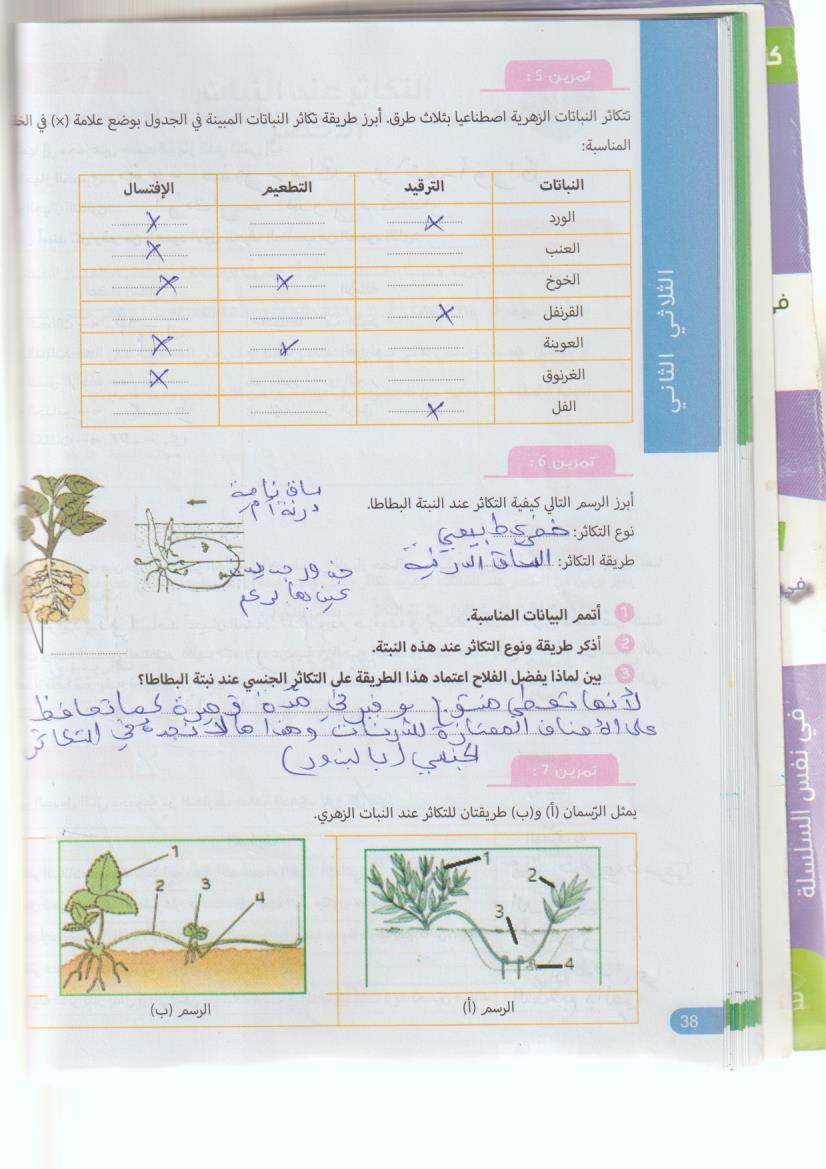 تمرين 5 :
تتكاثر النباتات الزهرية اصطناعيا بثلاث طرق. أبرز طريقة تكاثر النباتات المبينة في الجدول بوضع علامة (×) في
المناسبة:
النباتات الترقيد التطعيم الإفتسال
الورد X X
العنب X
الخوخ X X
القرنفل X
العوينة X X
الغرنوق X
الفل X
الثلاثي الثاني
تمرين 6 :
أبرز الرسم التالي كيفية التكاثر عند النبتة البطاطا.
ساق نامية
درنة أم
نوع التكاثر: خضري طبيعي
طريقة التكاثر: الساق الدرنية
1 أتمم البيانات المناسبة.
2 أذكر طريقة ونوع التكاثر عند هذه النبتة.
3 بين لماذا يفضل الفلاح اعتماد هذا الطريقة على التكاثر الجنسي عند نبتة البطاطا؟
لأنها تعطي منتوجا وفير في مدة قصيرة كما تحافظ
على الأصناف الممتازة للدرنات وهذا ما لا نجده في التكاثر
الجنسي (بالبذور)
تمرين 7 :
يمثل الرّسمان (أ) و(ب) طريقتان للتكاثر عند النبات الزهري.
1
2
3
4
1
2
3
4
الرسم (أ)
الرسم (ب)
38
في نفس السلسلة